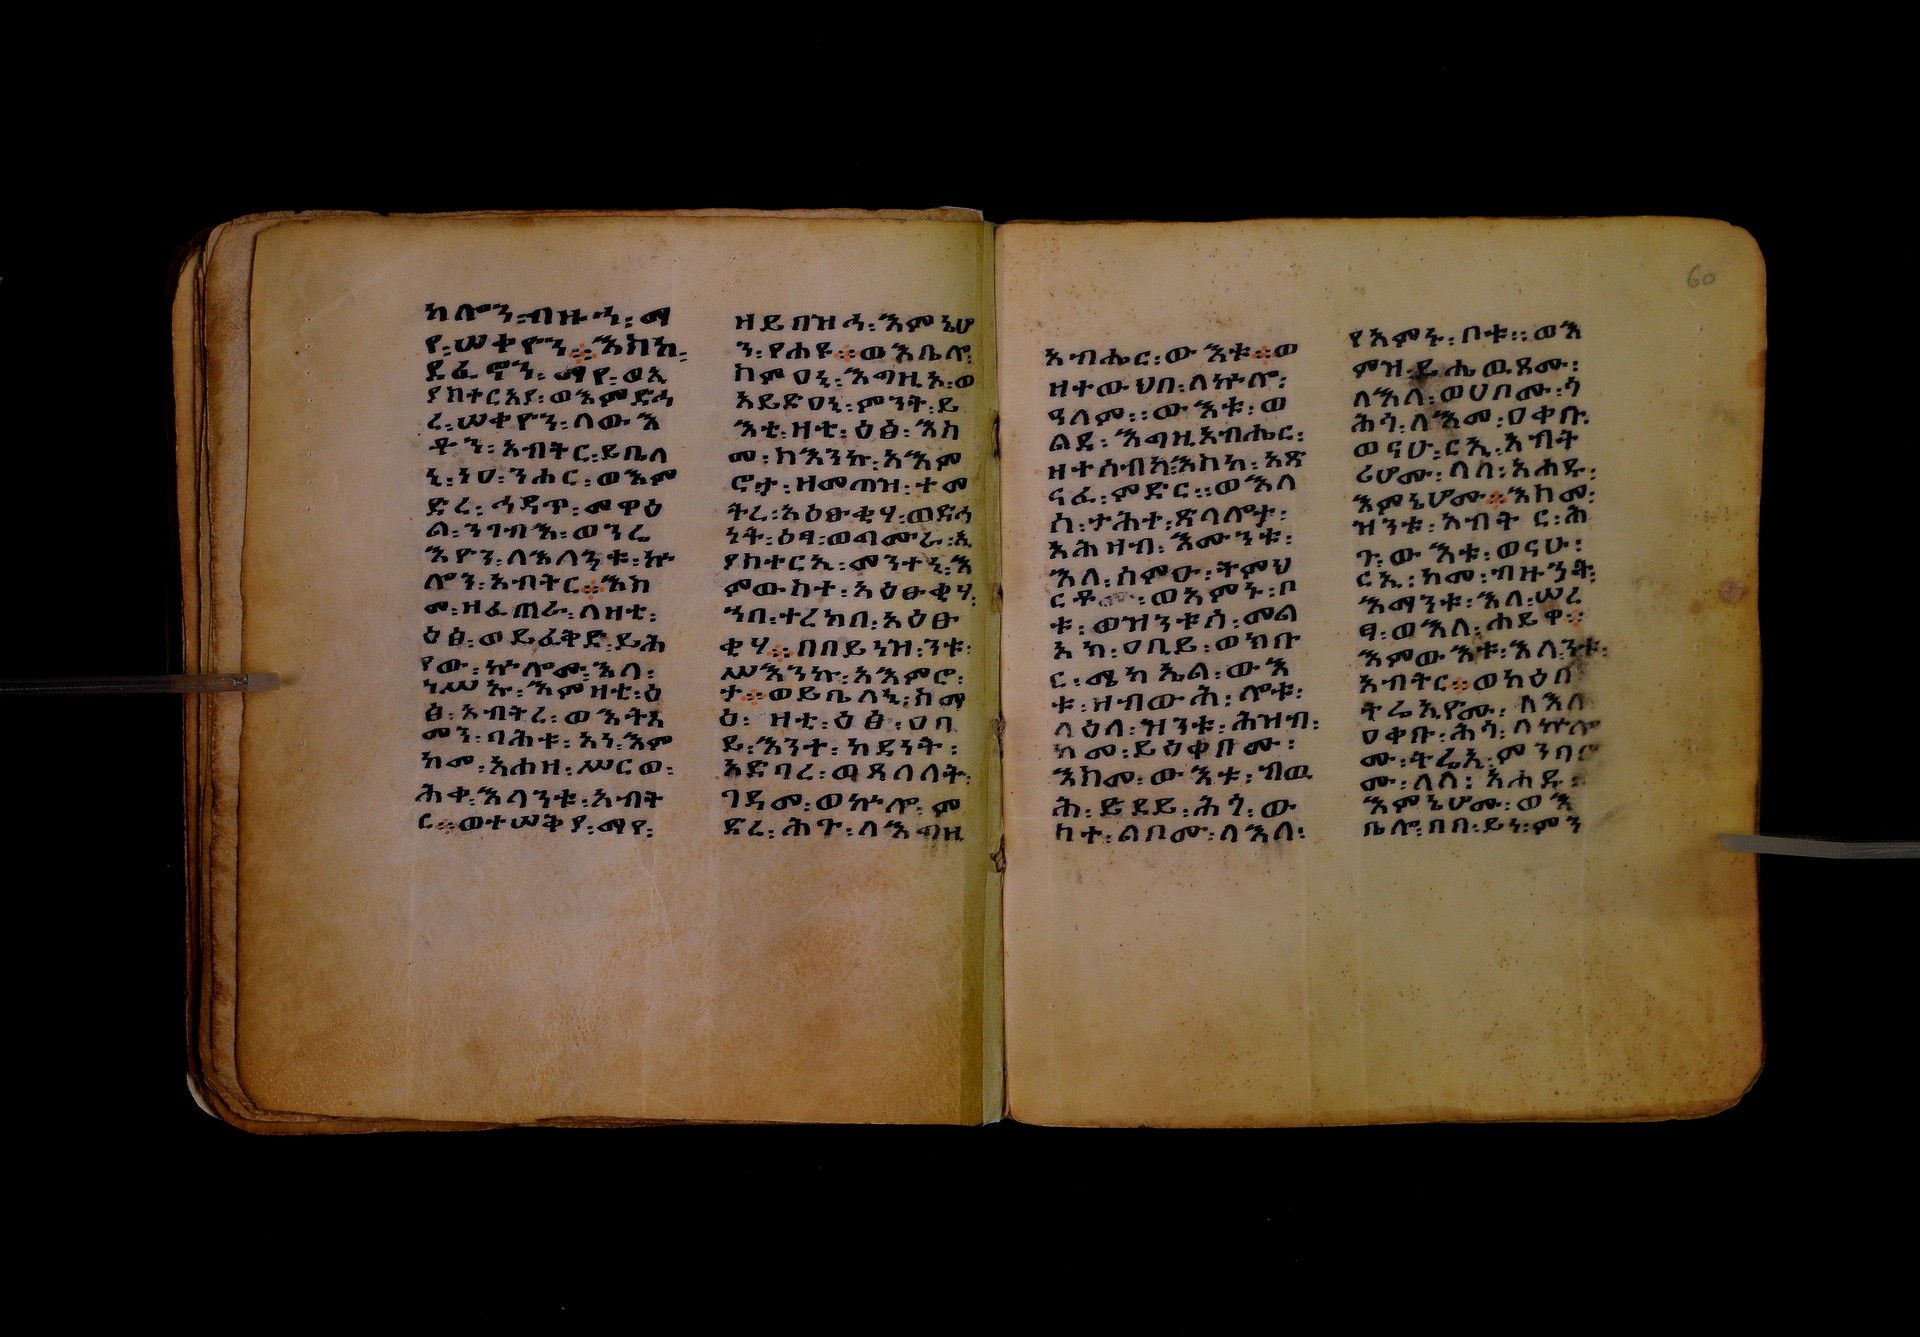 ክሎን፡ብዙኃ፡ማ
የ፡ሠቀዮን፡፡እስከ፡
ደፈኖን፡ማየ፡ወኢ
ያስተርአየ፡ወእምድኅ
ረ፡ሠቀዮን፡ለውእ
ቶን፡አብትር፡ይቤለ
ኒ፡ነዐ፡ንሑር፡ወእም
ድረ፡ኅዳጥ፡መዋዕ
ል፡ንገብእ፡ወንሬ
እዮን፡ለእላንቱ፡ኵ
ሎን፡አብትር፡፡እስ
መ፡ዘፈጠራ፡ለዘቲ፡
ዕፅ፡ወይፈቅድ፡ይሕ
የው፡ኵሎሙ፡እለ፡
ነሥኡ፡እምዘቲ፡ዕ
ፅ፡አብትረ፡ወእትአ
መን፡ባሕቱ፡አነ፡እም
ከመ፡አሐዘ፡ሥርወ፡
ሕቀ፡እላንቱ፡አብት
ር፡፡ወተሠቅያ፡ማየ፡
ዘይበዝኅ፡እምኔሆ
ን፡የሐዩ፡፡ወእቤሎ፡
ከምዐኒ፡እግዚኦ፡ወ
አይድዐኒ፡ምንት፡ይ
እቲ፡ዛቲ፡ዕፅ፡እስ
መ፡ከእንኩ፡አእም
ሮታ፡ዘመጠዝ፡ተመ
ትረ፡አዕፁቂሃ፡ወድኅ
ኒት፡ዕፃ፡ወግሙራ፡ኢ
ያስተርኢ፡መንተኒ፡እ
ምውስተ፡አዕፁቂሃ፡
ኀበ፡ተረክበ፡አዕፁ
ቂሃ፡፡በበይነዝ፡ንቱ፡
ሥእንኩ፡አእምሮ፡
ታ፡፡ወይቤለኒ፡ስማ
ዕ፡ዛቲ፡ዕፅ፡ዐባ
ይ፡እንተ፡ከደነት፡
አድባረ፡ወጸለለት፡
ገዳመ፡ወኵሎ፡ም
ድረ፡ሕጉ፡ለእግዚ
አብሔር፡ውእቱ፡፡ወ
ዘተውህበ፡ለኵሎ፡
ዓለም፡፡ውእቱ፡ወ
ልደ፡እግዚአብሔር፡
ዘተሰብከ፡እስከ፡አጽ
ናፈ፡ምድር፡፡ወእለ
ስ፡ታሕተ፡ጽላሎታ፡
አሕዛብ፡እሙንቱ፡
እለ፡ሰምዑ፡ትምህ
ርቶ፡ወአምኑ፡ቦ
ቱ፡ወዝንቱሰ፡መል
አክ፡ዐቢይ፡ወክቡ
ር፡ሚካኤል፡ውእ
ቱ፡ዘብውሕ፡ሎቱ፡
ላዕለ፡ዝንቱ፡ሕዝብ፡
ከመ፡ይዕቀቦሙ፡
እስመ፡ውእቱ፡ብዉ
ሕ፡ይደይ፡ሕገ፡ው
ስተ፡ልቦሙ፡ለእለ፡
የአምኑ፡ቦቱ፡፡ወእ
ምዝ፡ይሔዉጾሙ፡
ለእለ፡ወሀቦሙ፡ኅ
ሕገ፡ለእመ፡ዐቀቡ፡
ወናሁ፡ርኢ፡አብት
ሪሆሙ፡ለለ፡አሐዱ፡
እምኔሆሙ፡፡እስመ፡
ዝንቱ፡አብትር፡ሕ
ጉ፡ውእቱ፡ወናሁ፡
ርኢ፡ከመ፡ብዙኃት፡
እማንቱ፡እለ፡ሠረ
ፃ፡ወእለ፡ሐይዋ፡፡
እምውእቱ፡እላንቱ፡
አብትር፡፡ወከዕበ
ትሬኢዮሙ፡ለእለ
ዐቀቡ፡ሕገ፡ለኵሎ
ሙ፡ትሬኢ፡ምንባሮ
ሙ፡ለለ፡አሐዱ፡
እምኔሆሙ፡ወእ
ቤሎ፡በበ፡ይነ፡ምን